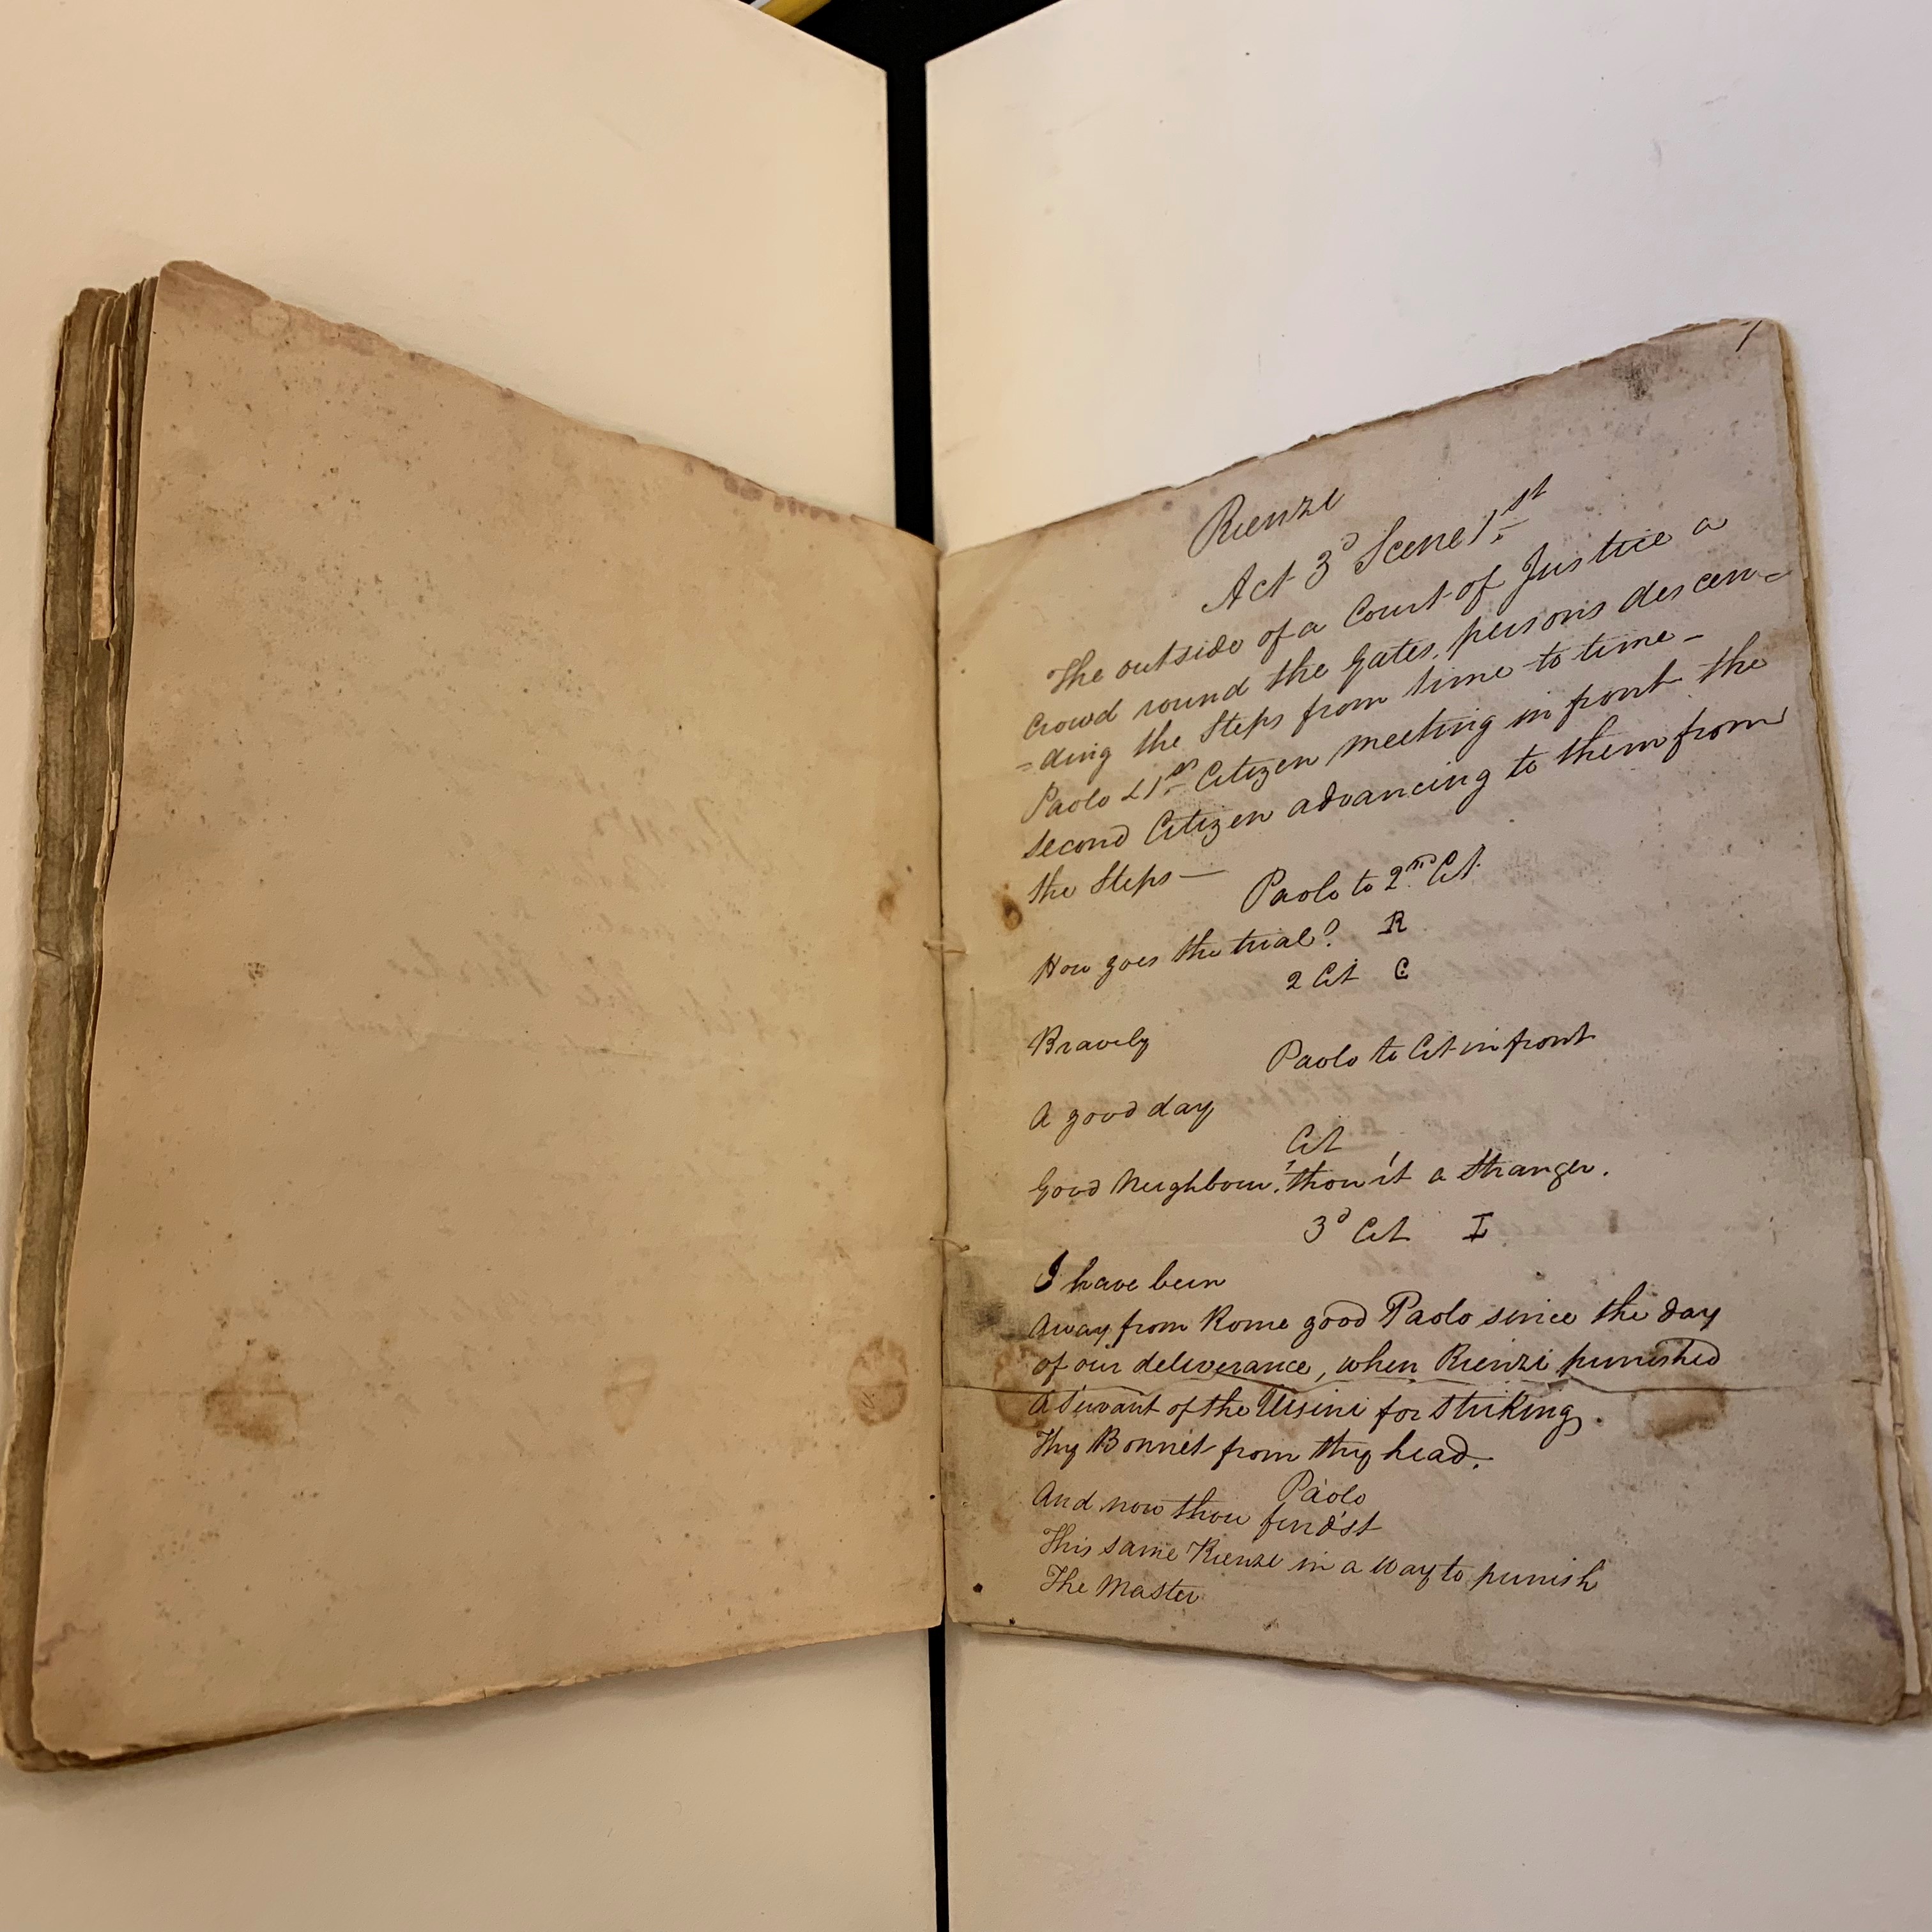 1
Rienzi
Act 3d Scene 1st
The outside of a Court of Justice a
Crowd round the Gates, persons descen=
=ding the Steps from time to time –
Paolo & 1st Citizen meeting in front the
Second Citizen advancing to them from
the Steps —
Paolo to 2nd Cit
How goes the trial? R
2 Cit C
Bravely
Paolo to Cit in front
A good day
Cit
Good Neighbour, thou'rt a Stranger.
3d Cit L
I have been
Away from Rome good Paolo since the day
of our deliverance, when Rienzi punished
A Servant of the Ursini for striking
Thy Bonnet from thy head.
Paolo
And now thou find'st
This same Rienzi in a way to punish
The Master